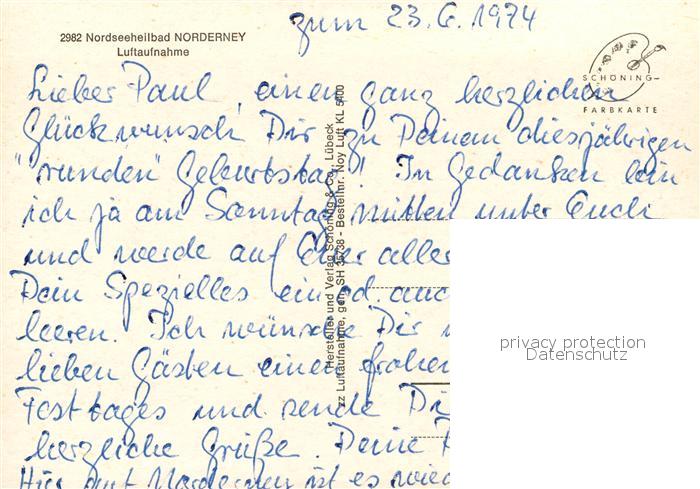 zum 23.6.1974
2982 Nordseeheilbad NORDERNEY
Luftaufnahme
SCHÖNING-
FARBKARTE
Lieber Paul, einen ganz herzlichen
Glückwunsch Dir zu Deinem diesjährigen
"runden" Geburtstag! In Gedanken bin
ich ja am Sonntag mitten unter Euch
und werde auf Euer aller
Dein Spezielles ein auch
leeren. Ich wünsche Dir
lieben Gästen einen frohen
Festtages und sende
herzliche Grüße. Deine
Hier auf Norderney ist es
Hersteller und Verlag Schöning & Co., Lübeck
Luftaufnahme, gen. SH 35/38 - Bestellnr. Noy Luft KL 5400
privacy protection
Datenschutz